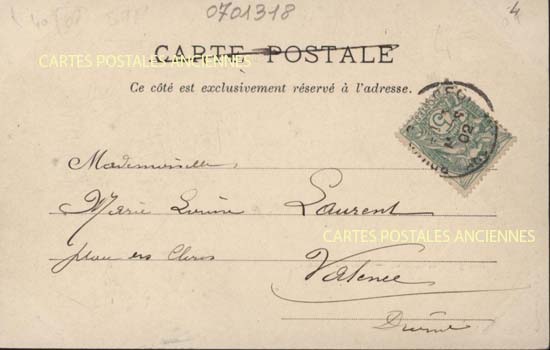 0701318
4
CARTE POSTALE
CARTES POSTALES ANCIENNES
Ce côté est exclusivement réservé à l'adresse.
02
Mademoiselle
Marie Laurent
CARTES POSTALES ANCIENNES
place des Clercs Valence
Drôme